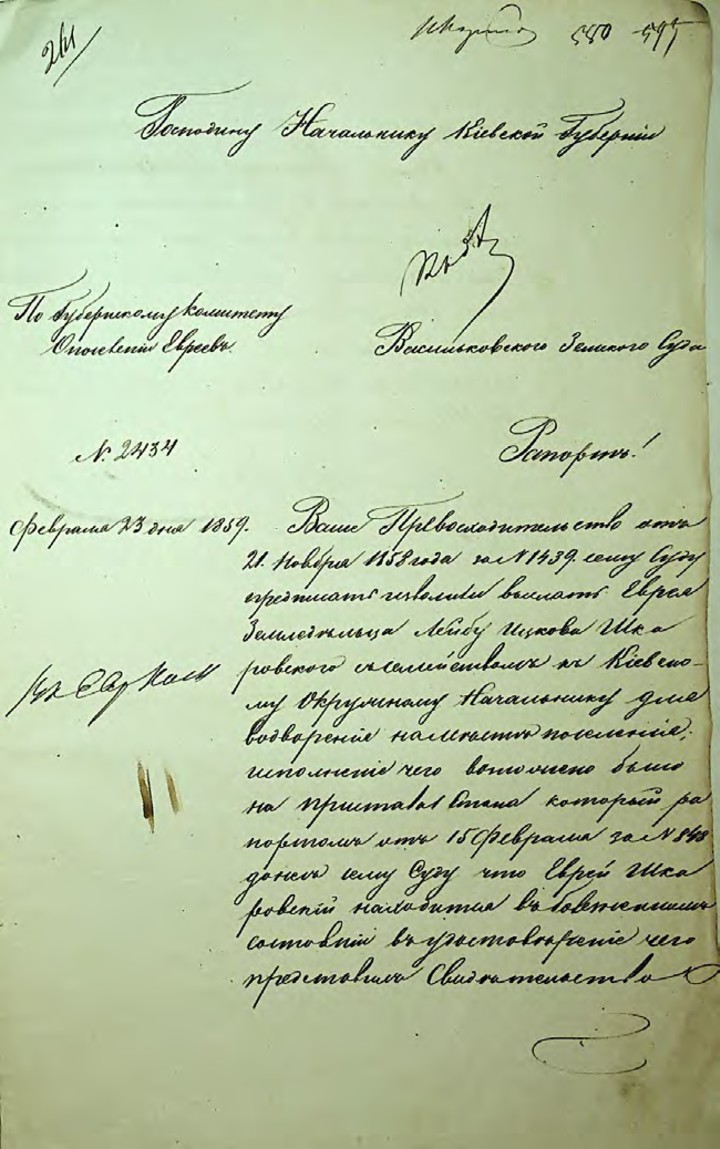 241
580 595
Господину Начальнику Кіевской Губерніи
По Губернскому Комитету
Поселенія Евреевъ.
Васильковского Земского Суда
№ 2434
Рапортъ!
Февраля 23 дня 1859.
Ваше Превосходительство отъ
21. Ноября 1858 года за № 1439. сему Суду
предписать изволили выслать Еврея
Земледельца Лейбу Ицкова Шка
ровского съ семействомъ къ Кіевско
му Окружному Начальнику для
водворенія на место поселенія;
исполненіе чего возложено было
на Пристава Стана который ра
портомъ отъ 15 Февраля за № 848
донелъ сему Суду что Еврей Шка
ровскій находится въ болезненномъ
состояніи въ удостовереніе чего
представилъ Свидетельство